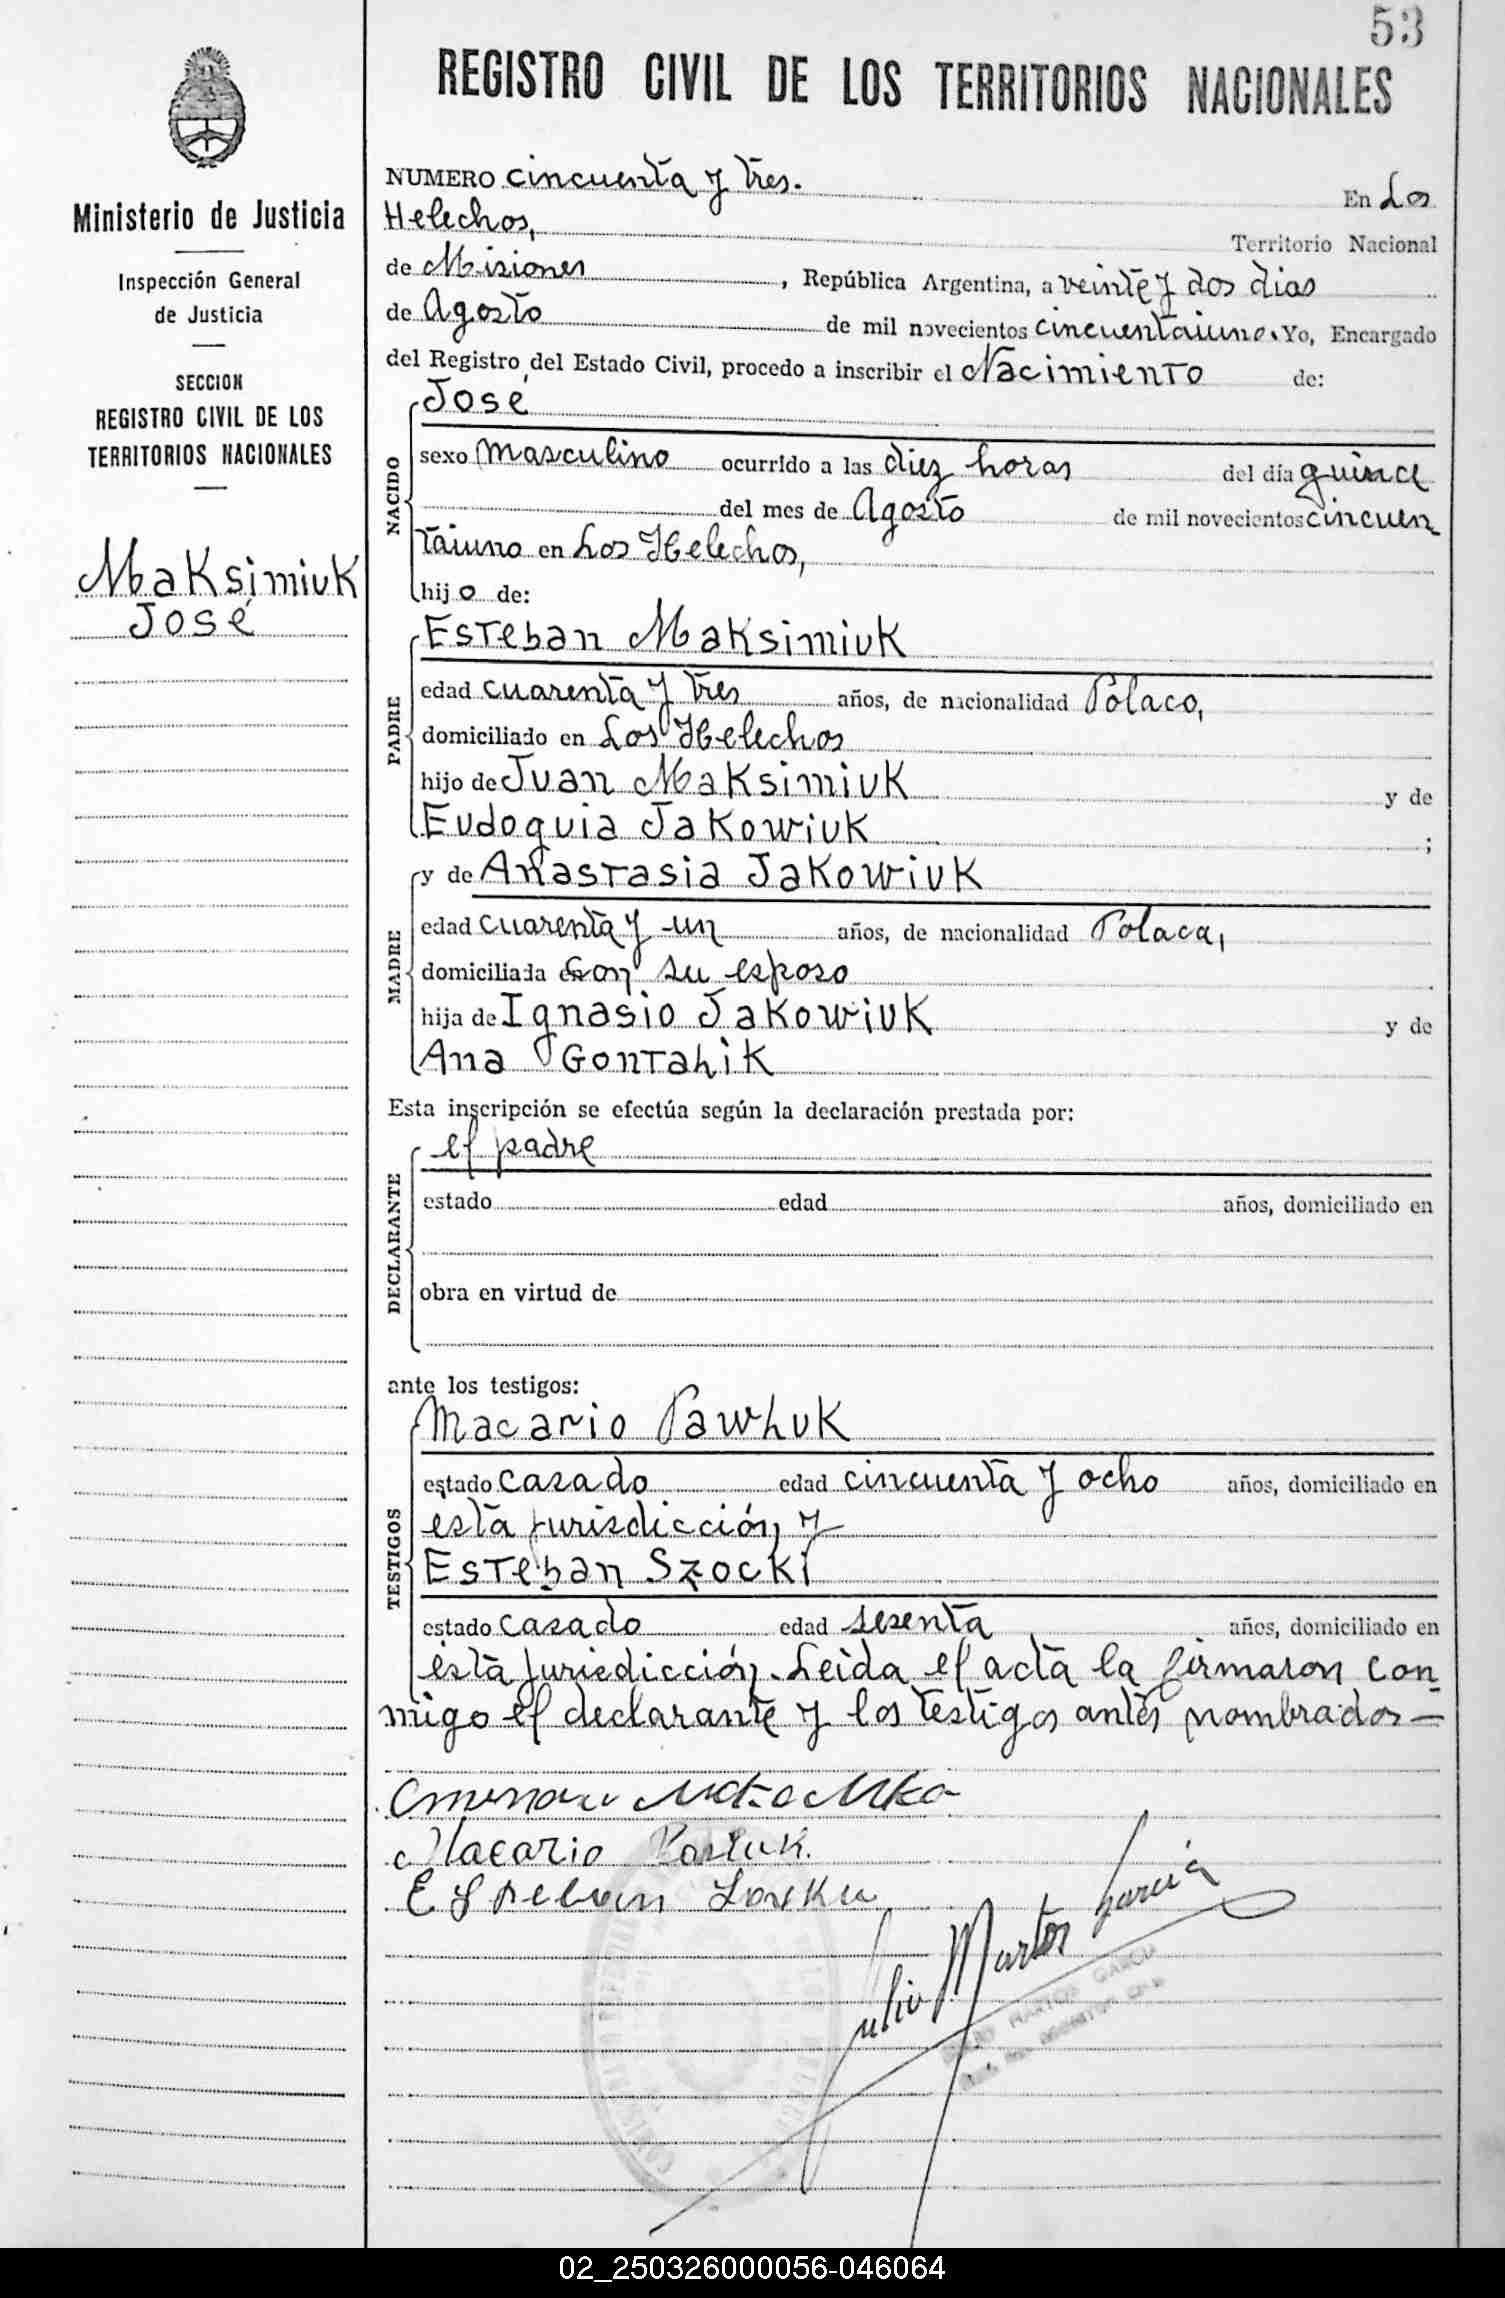 53
REGISTRO CIVIL DE LOS TERRITORIOS NACIONALES
Ministerio de Justicia
Inspección General
de Justicia
SECCION
REGISTRO CIVIL DE LOS
TERRITORIOS NACIONALES
Maksimiuk
José
NUMERO cincuenta y tres. En Los
Helechos, Territorio Nacional
de Misiones, República Argentina, a veinte y dos dias
de Agosto de mil novecientos cincuentaiuno. Yo, Encargado
del Registro del Estado Civil, procedo a inscribir el Nacimiento de:
José
NACIDO
sexo masculino ocurrido a las diez horas del día quince
del mes de Agosto de mil novecientos cincuen
taiuno en Los Helechos,
hijo de:
Esteban Maksimiuk
PADRE
edad cuarenta y tres años, de nacionalidad Polaco,
domiciliado en Los Helechos
hijo de Juan Maksimiuk y de
Eudoquia Jakowiuk ;
y de Anastasia Jakowiuk
MADRE
edad cuarenta y un años, de nacionalidad Polaca,
domiciliada con su esposo
hija de Ignasio Jakowiuk y de
Ana Gontahik
Esta inscripción se efectúa según la declaración prestada por:
el padre
DECLARANTE
estado edad años, domiciliado en
obra en virtud de
ante los testigos:
Macario Pawhuk
TESTIGOS
estado casado edad cincuenta y ocho años, domiciliado en
esta jurisdicción y
Esteban Szocki
estado casado edad sesenta años, domiciliado en
esta jurisdicción. Leida el acta la firmaron con
migo el declarante y los testigos antes nombrados—
Macario
Julio Martos Garcia
JULIO MARTOS GARCIA
02_250326000056-046064